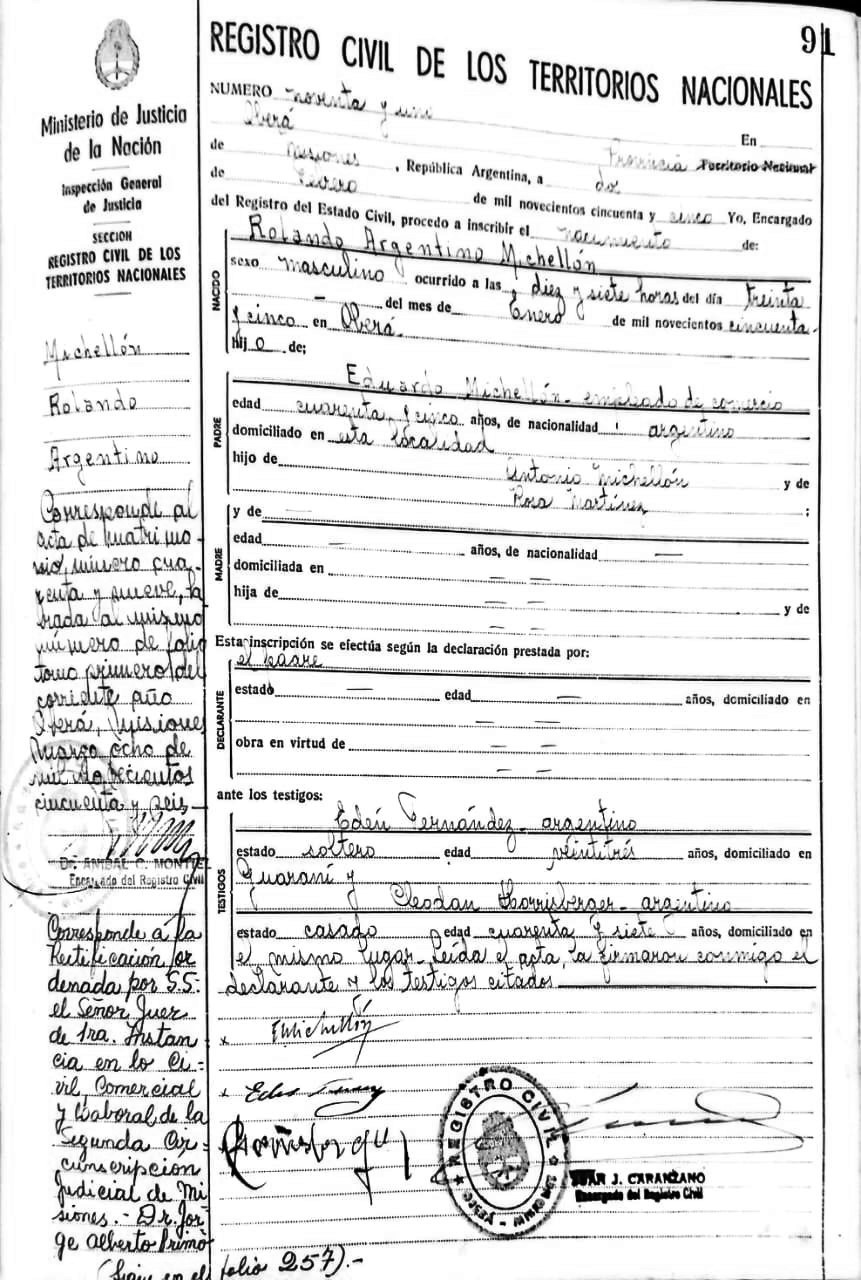 91
REGISTRO CIVIL DE LOS TERRITORIOS NACIONALES
Ministerio de Justicia
de la Nación
Inspección General
de Justicia
SECCION
REGISTRO CIVIL DE LOS
TERRITORIOS NACIONALES
Michellón
Rolando
Argentino
Corresponde al
acta de matrimo-
nio, número cua-
renta y nueve, la
brada al mismo
número de folio
tomo primero del
corriente año
Oberá, Misiones
Marzo ocho de
mil novecientos
cincuenta y seis
Dr. ANIBAL C.
Encargado del Registro Civil
Corresponde á la
Rectificación or
denada por S.S.
el Señor Juez
de 1ra. Instan
cia en lo Ci-
vil, Comercial
y Laboral de la
Segunda Cir-
cunscripcion
Judicial de Mi
siones.- Dr. Jor
ge Alberto Primo
(Sigue en el folio 257).-
NUMERO noventa y uno
Oberá En
de Misiones, República Argentina, a Provincia Territorio Nacional dos
de Febrero de mil novecientos cincuenta y cinco Yo, Encargado
del Registro del Estado Civil, procedo a inscribir el nacimiento de:
NACIDO
Rolando Argentino Michellón
sexo masculino ocurrido a las diez y siete horas del día treinta
— del mes de Enero de mil novecientos cincuenta
y cinco en Oberá.
hijo de;
PADRE
Eduardo Michellón - empleado de comercio
edad cuarenta y cinco años, de nacionalidad argentino
domiciliado en esta localidad
hijo de Antonio Michellón y de
Rosa Martínez ;
MADRE
y de —
edad — años, de nacionalidad —
domiciliada en — —
hija de — — y de
— —
Esta inscripción se efectúa según la declaración prestada por:
el padre
DECLARANTE
estado — edad — años, domiciliado en
— —
obra en virtud de — —
— —
ante los testigos:
TESTIGOS
Edén Fernández - argentino
estado soltero edad veintitrés años, domiciliado en
Guaraní y
Cleodan - argentino
estado casado edad cuarenta y siete años, domiciliado en
el mismo lugar - Leída el acta, la firmaron conmigo el
declarante y los testigos citados
x EMichellón
x
REGISTRO CIVIL
JUAN J. CARANZANO
Encargado del Registro Civil